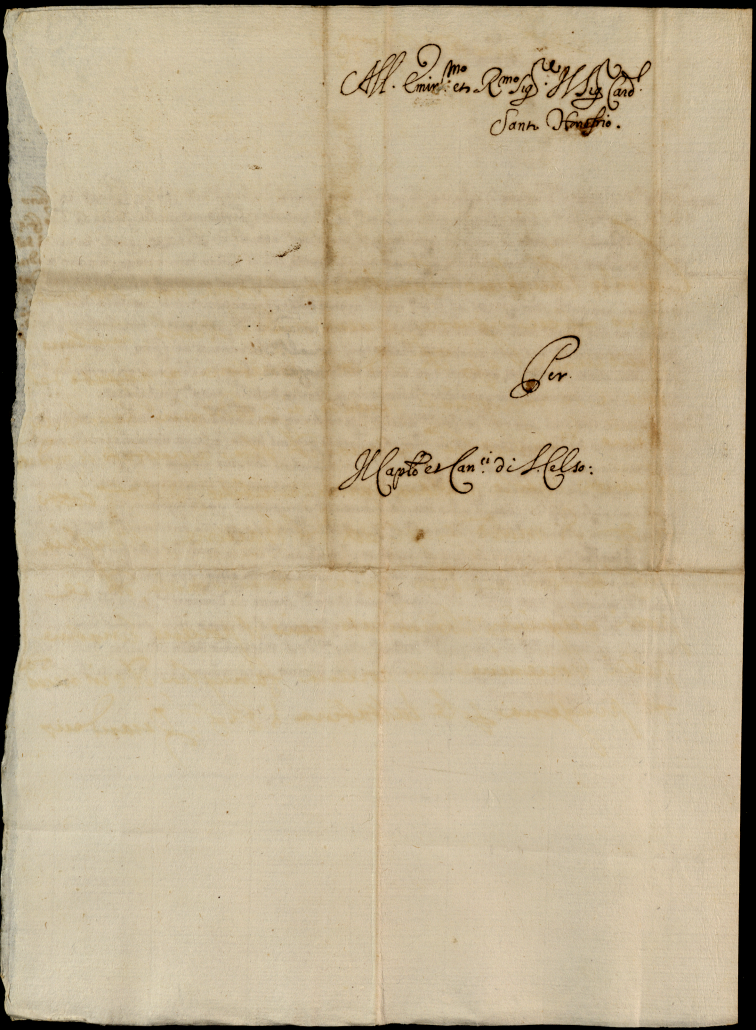 All. Emin.mo et Rmo Sig.re Il Sig. Card.l
Santo Honofrio.
Per
Il Caplo et Can.ci di S. Celso: